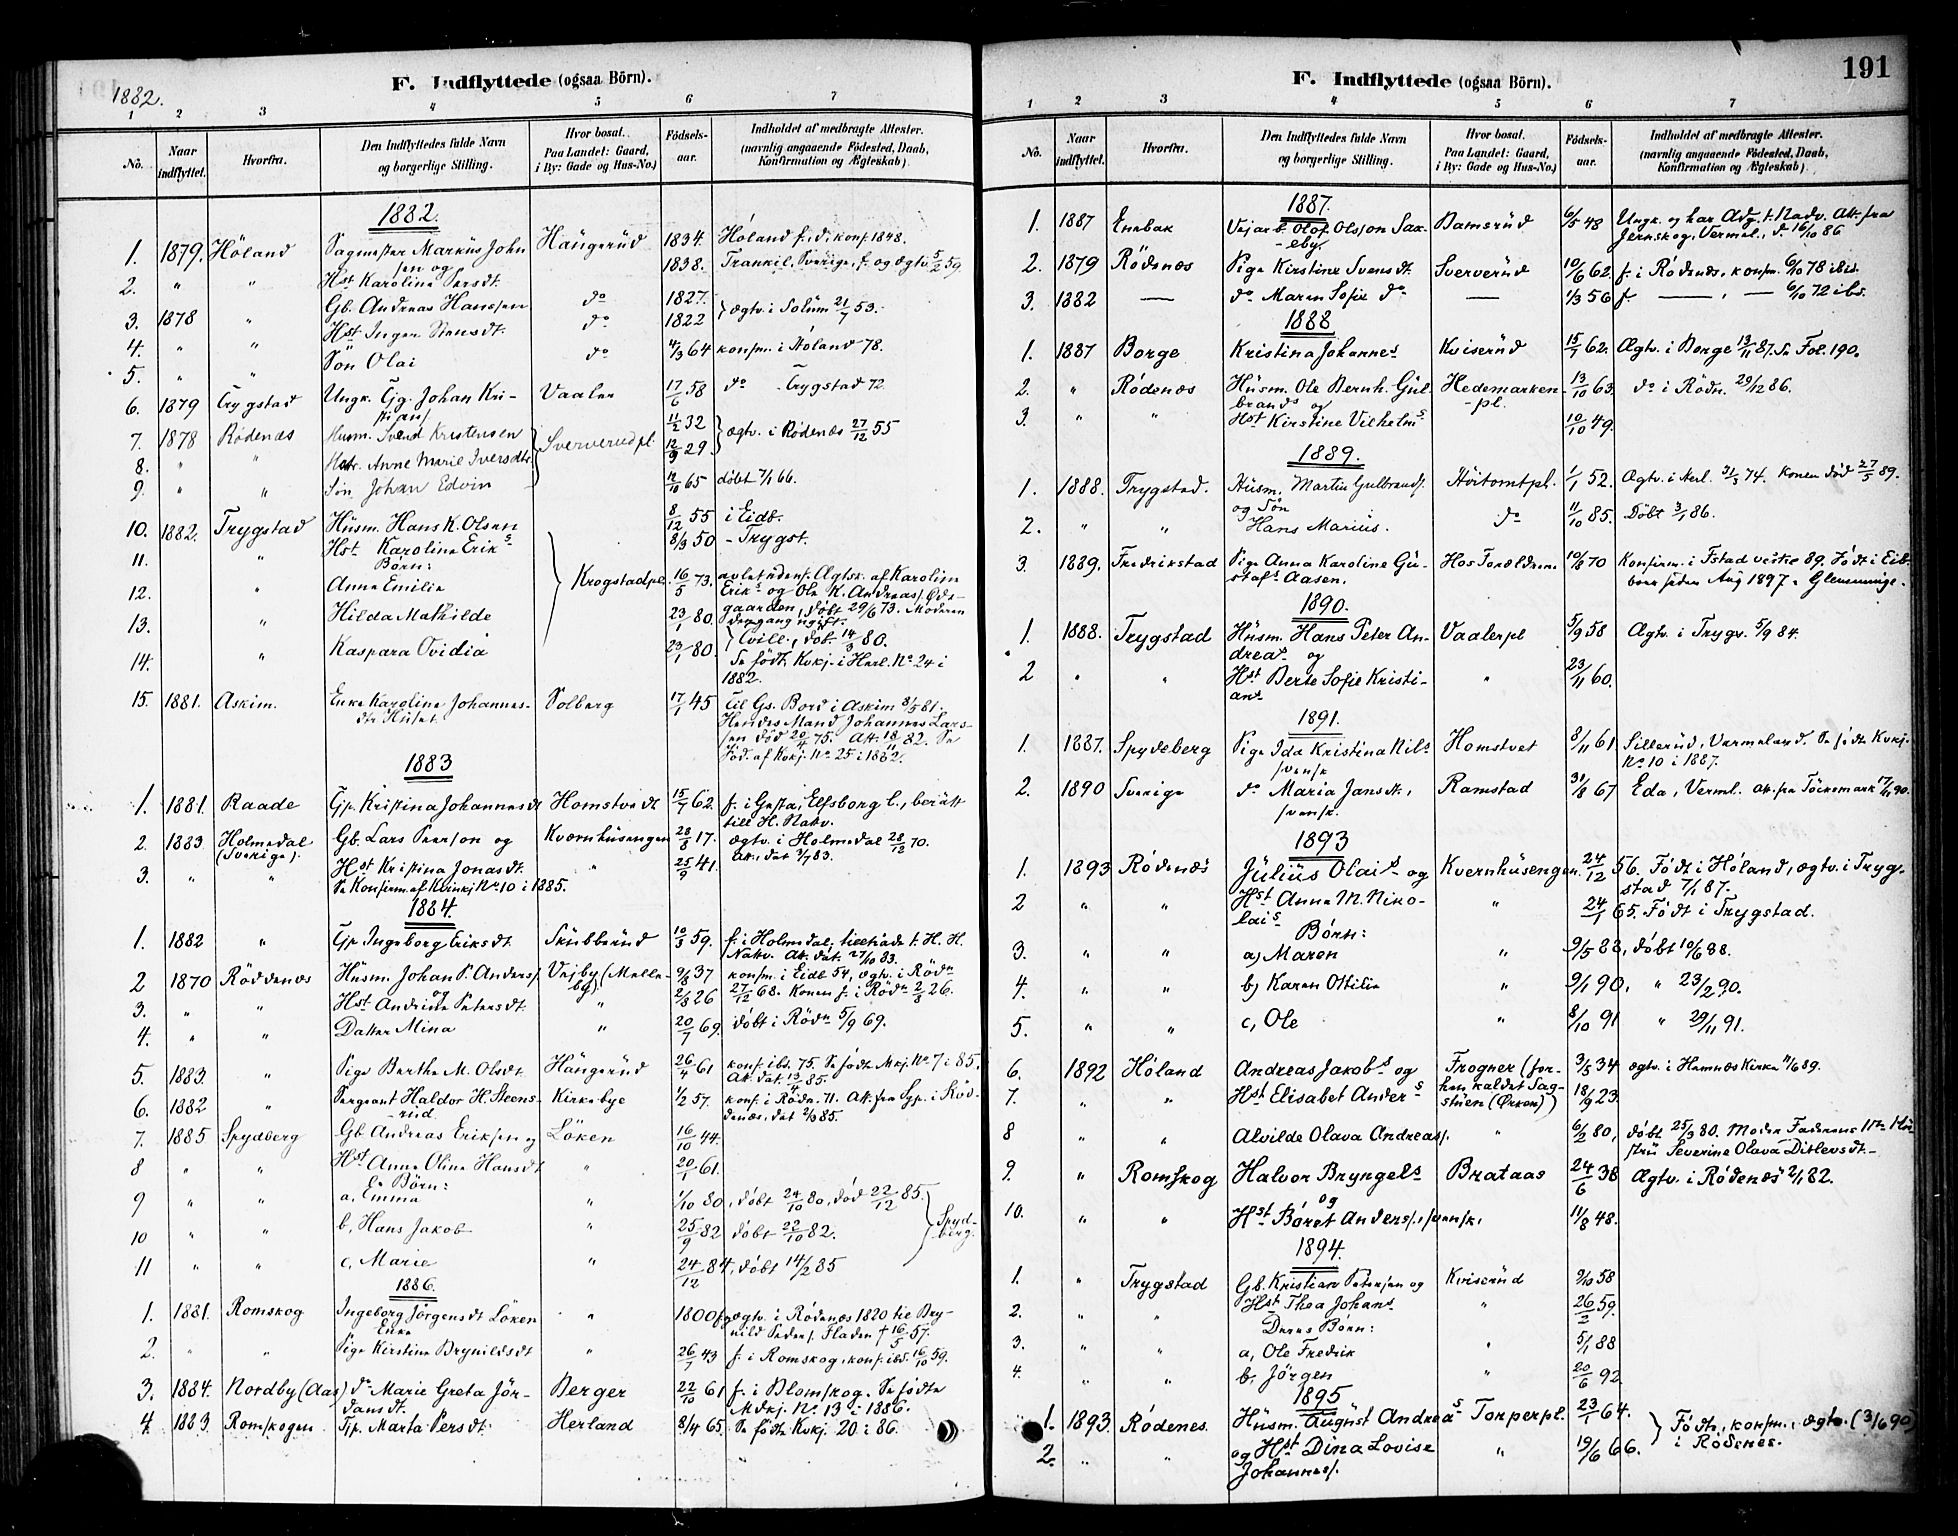 1882.
F. Indflyttede (ogsaa Börn).
1 2 3 4 5 6 7
No. Naar indflyttet. Hvorfra. Den Indflyttedes fulde Navn og borgerlige Stilling. Hvor bosat. Paa Landet: Gaard, i By: Gade og Hus-No.) Födsels-aar. Indholdet af medbragte Attester. (navnlig angaaende Födested, Daab, Konfirmation og Ægteskab).
1882.
1. 1879. Höland Sagmester Markus John Haugerud 1834. Höland f., d., konf. 1848.
sen og
2. " " Hst Karoline Larsdt. 1838. Trankil, Sverige, f. og ægtv. 5/2 59.
3. 1878 " Gb. Andreas Hanssen do 1827. } ægtv. i Solum 21/7 53.
4. " " Hst Inger Stensdt. do 1822
5. " " Sön Olai do 4/3 64 konfm. i Höland 78.
6. 1879 Trygstad Ungk. Gg. Johan Kri- Vaaler 17/6 58 do - Trygstad 72
stians.
7. 1878 Rödenæs Husm. Svend Kristensen } Sververudpl. 11/2 32 } ægtv. i Rödenæs 27/12 55
8. " " Hstr. Anne Marie Iversdtr. 12/9 29
9. " " Sön Johan Edvin 12/10 65 döbt 7/1 66.
10. 1882. Trygstad Husm. Hans K. Olsen 8/12 55 i Eidb.
11. " Hst Karoline Eriks 8/3 50 - Trygst.
Börn: } Krogstadpl.
12. " Anna Emilie 16/5 73. avlet udenf. Ægtsk. af Karolin
Eriks og Ole K. Andreass. Öds-
gaarden, döbt 29/6 73. Moderen
13. " Hilda Mathilde 23/1 80. dengang ugift.
} Tvill., döbt 14/3 80.
14. " Kaspara Ovidia 23/1 80. Se födte Kvkj. i Herl. No 24 i
1882.
15. 1881. Askim. Enke Karoline Johannes- Solberg 17/1 45 Til Gs. Bord i Askim 8/5 81.
dtr Huset. Hendes Mand Johannes Lars-
sen död 20/4 75. Att. 18/11 82. Se
Föd. af Kvkj. No 25 i 1882.
1883
1. 1881. Raade Gp. Kristina Johannesdt Homstvedt 15/7 62. f. i Gesta, Elfsborg l., berätt
till H. Nattv.
2. 1883. Holmedal Gb. Lars Person og Kværnhusengen 28/8 17. ægtv. i Holmedal 28/12 70.
(Sverige). Att. dat. 3/7 83.
3. " " Hst Kristina Jonasdt. " 25/9 41.
Se Konfirm. af Kvinkj No 10 i 1885.
1884.
1. 1882 " Gp. Ingeborg Eriksdt. Skubberud 10/3 59. f. i Holmedal, tilträde t. H. H.
Nattv. Att. dat. 27/10 83.
2 1870 Röddenæs Husm. Johan P. Anders. Vejby (Melle- 9/8 37 konfm. i Eidb 54, ægtv. i Rödn
og by) 27/12 68. Konen f. i Rödn 2/8 26.
3. " " Hst Andrine Petersdt. " 2/8 26
4. " " Datter Mina " 20/7 69. döbt i Rödn 5/9 69.
5. 1883. " Pige Berthe M. Olsdt. Haugerud 26/4 61 konf. ibs. 75. Se födte Mkj. No 7 i 85.
Att. dat. 13/4 85.
6. 1882 " Sergeant Haldor H. Steens- Kirkebye 1/2 57. konf. i Rödn. 71. Att. fra Sgp. i Röd-
rud denæs, dat 2/3 85.
7. 1885 Spydberg Gb. Andreas Eriksen og Löken 16/10 44.
8 " " Hst Anne Oline Hansdt " 20/1 61.
Börn:
9 " " a, Emma " 1/10 80, döbt 24/10 80, död 22/12 85.
10 " " b, Hans Jakob " 25/9 82 döbt 22/10 82. } Spyd-
berg.
11 " " c, Marie " 24/12 84, döbt 14/2 85
1886.
1. 1881. Romskog Ingeborg Jörgensdt Löken " 1800 f. ægtv. i Rödenæs 1820 til Bry-
Enke nild Peders. Fladen † 16/5 57.
2. " " Pige Kirstine Brynildsdt " 26/7 43 f. i Romskog, konf. ibs. 16/10 59.
3. 1884. Nordby (Aas) do Marie Greta Jör- Berger 22/10 61 f. i Blomskog. Se födte
dansdt. Mdkj. No 13 i 1886.
4. 1883. Romskogen Gp. Marta Persdt. Herland 8/4 65. Se födte Kvkj. 20 i 86.
F. Indflyttede (ogsaa Börn). 191
1 2 3 4 5 6 7
No. Naar indflyttet. Hvorfra. Den Indflyttedes fulde Navn og borgerlige Stilling. Hvor bosat. Paa Landet: Gaard, i By: Gade og Hus-No.) Födsels-aar. Indholdet af medbragte Attester. (navnlig angaaende Födested, Daab, Konfirmation og Ægteskab).
1887.
1. 1887 Enebak Vejarb. Olof Olsson Sax- Bamsrud 6/5 48 Ungk. og har Adg. t. Nadv. Att. fra
eby. Jernskog, Vermel., d. 16/10 86
2. 1879 Rödenæs Pige Kirstine Svensdt. Sververud 10/6 62. f. i Rödenæs, konfm. 6/10 78 ibis.
3. 1882 — do Maren Sofie do — 1/3 56 f. —, — 6/10 72 ibs.
1888
1. 1887 Borge Kristina Johannes Kviserud 15/7 62. Ægtv. i Borge 13/11 87. Se Fol. 190.
2. " Rödenæs Husm. Ole Bernh. Gul- Hedemarken 13/10 63. do i Rödn. 29/12 86.
brands og -pl.
3. " " Hst Kirstine Vilhelms 10/10 49.
1889.
1. 1888. Trygstad. Husm. Martin Gulbrands. Höitomtpl. 1/1 52. Ægtv. i Herl. 31/3 74. Konen död 27/5 89.
og Sön
2. " " Hans Marius. do 11/10 85. Döbt 3/1 86.
3. 1889. Fredrikstad Pige Anna Karoline Gu- Hos Forældrene 10/8 70 Konfirm. i Fstad vestre 89. Födt i Eid-
stafs Aasen. berg siden Aug 1897 i Glemminge.
1890.
1. 1888. Trygstad Husm. Hans Peter An- Vaalerpl 5/9 58 Ægtv. i Trygs. 5/9 84.
dreas og
2 " " Hst Berte Sofie Kristi- " 23/11 60.
ans
1891.
1. 1887. Spydeberg Pige Ida Kristina Nils Homstvet 8/11 61 Sillerud, Vermeland. Se födte Kvkj.
svensk No 10 i 1887.
2. 1890 Sverige do Maria Jansdt., Ramstad 31/8 67 Eda, Verml. att. fra Töcksmark 17/11 90.
svensk.
1893
1. 1893 Rödenæs Julius Olais og Kvernhusengen 24/12 56. Födt i Höland, ægtv. i Tryg-
stad 7/1 87.
2 " " Hst Anne M. Niko- " 24/1 65. Födt i Trygstad.
lais
Börn:
3. " " a) Maren " 9/5 88, döbt 10/6 88.
4. " " b) Karen Ottilie " 9/1 90, " 23/2 90.
5. " " c, Ole " 8/10 91 " 29/11 91.
6. 1892 Höland Andreas Jakobs og Frogner (for- 3/5 34 ægtv. i Hemnæs Kirke 11/6 89.
7. " " Hst Elisabet Anders hen kaldet Sag- 18/9 23.
stuen (Örken))
8 " " Alvilde Olava Andreass. " 6/2 80, döbt 25/3 80. Moder Faderens 1te Hu-
stru Severine Olava Ditlevsdt.
9. " Romskog Halvor Bryngels Brataas 24/6 38 Ægtv. i Rödenæs 2/1 82.
og
10. " " Hst Böret Anders., svensk. 11/8 48.
1894.
1. " Trygstad Gb. Kristian Petersen og Kviserud 9/10 58
2. " " Hst Thea Johans " 26/2 59.
Deres Börn:
3. " " a, Ole Fredrik " 5/1 88
4. " " b, Jörgen " 20/6 92
1895
1. 1893. Rödenes. Husm. August Andreas Torperpl. 23/1 64. } Födte, konfm., ægtv. (3/6 90)
2. " " og Hst Dina Lovise " 19/6 66. i Rödenes.
Johannes.